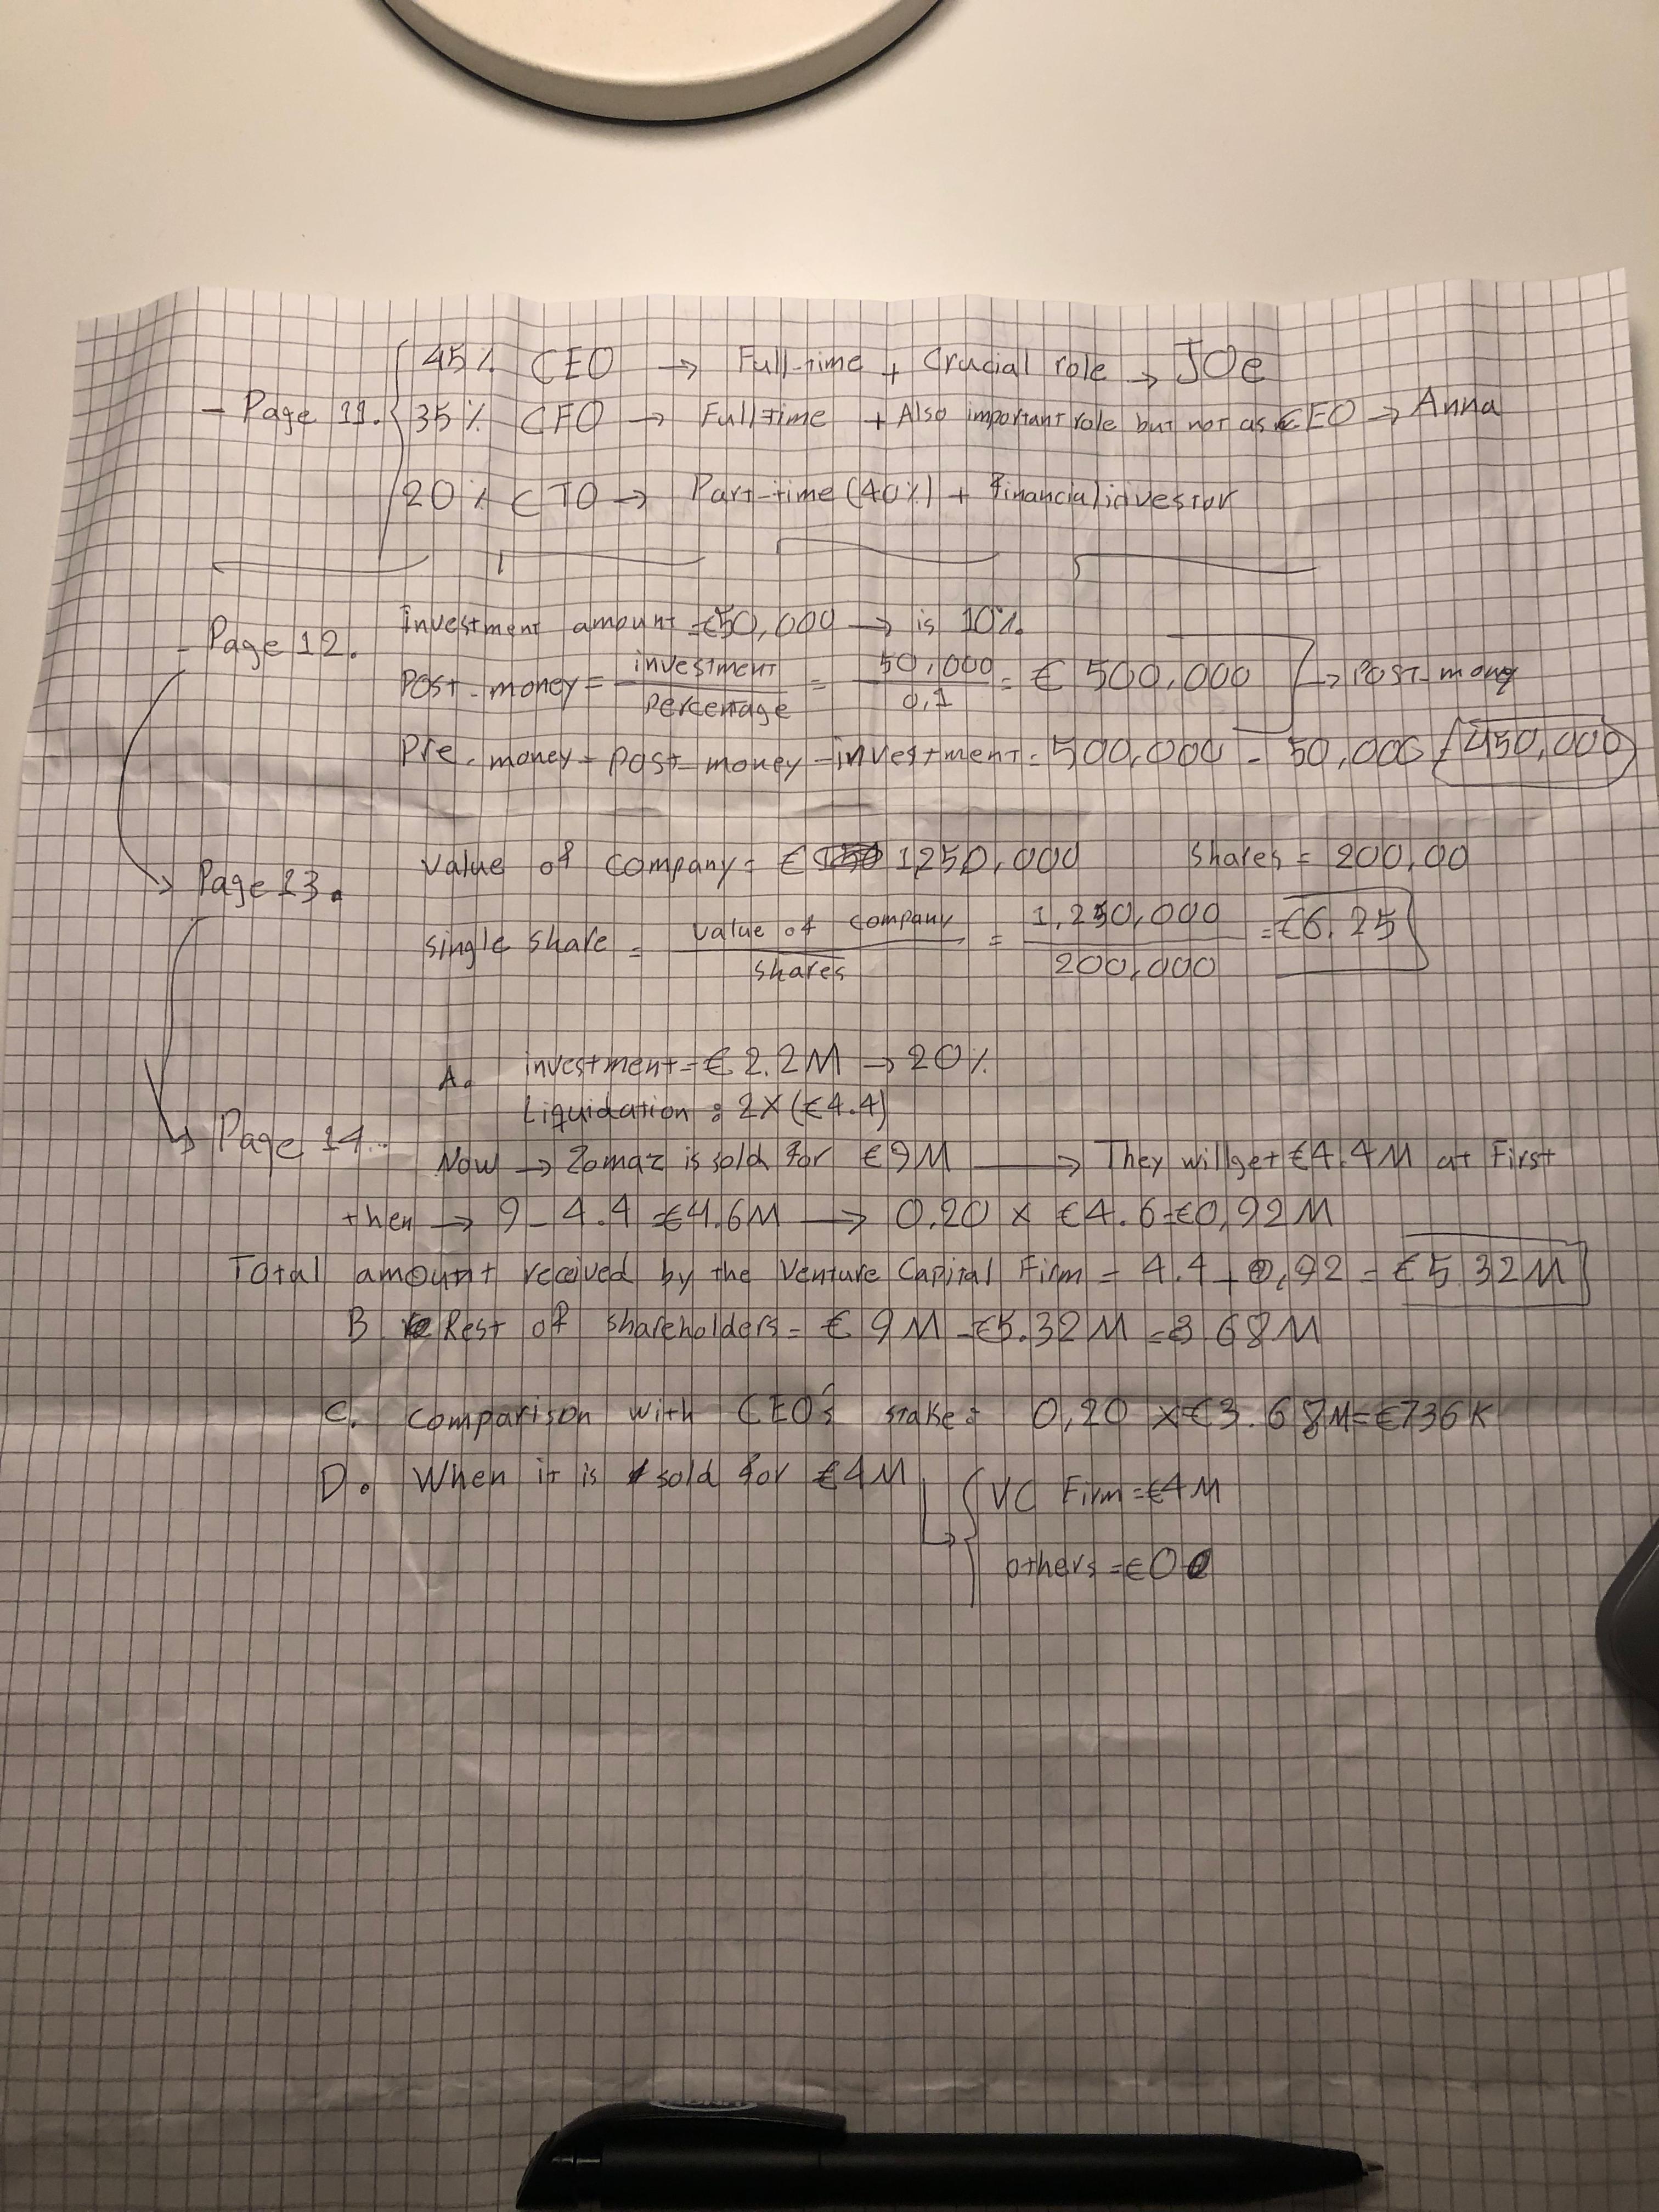 45% CEO → Full-time + Crucial role → JOe
- Page 11. 35% CFO → Full time + Also important role but not as CEO → Anna
20% CTO → Part-time (40%) + Financial investor
- Page 12. investment amount = €50,000 → is 10%
Post-money = investment / Percentage = 50,000 / 0,1 = € 500,000 → Post-money
Pre-money = post-money - investment = 500,000 - 50,000 = 450,000
→ Page 13. value of company = € 1,250,000 Shares = 200,00
single share = value of company / shares = 1,250,000 / 200,000 = €6.25
A. investment = € 2.2M → 20%
Liquidation : 2X (€4.4)
→ Page 14.
Now → Zomaz is sold for €9M → They will get €4.4M at First
then → 9 - 4.4 = €4.6M → 0.20 x €4.6 = €0,92M
Total amount received by the Venture Capital Firm = 4.4 + 0,92 = €5.32M
B Rest of shareholders = € 9M - €5.32M = 3.68M
C. Comparison with CEO's stake: 0,20 x €3.68M = €736K
D. When it is sold for €4M → VC Firm = €4M
others = €0